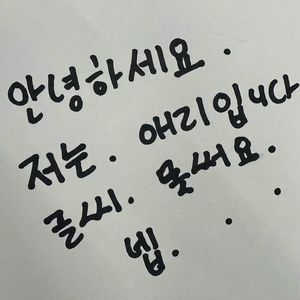 안녕하세요.
저는. 애리입니다
글씨. 못써요.
넵. . .